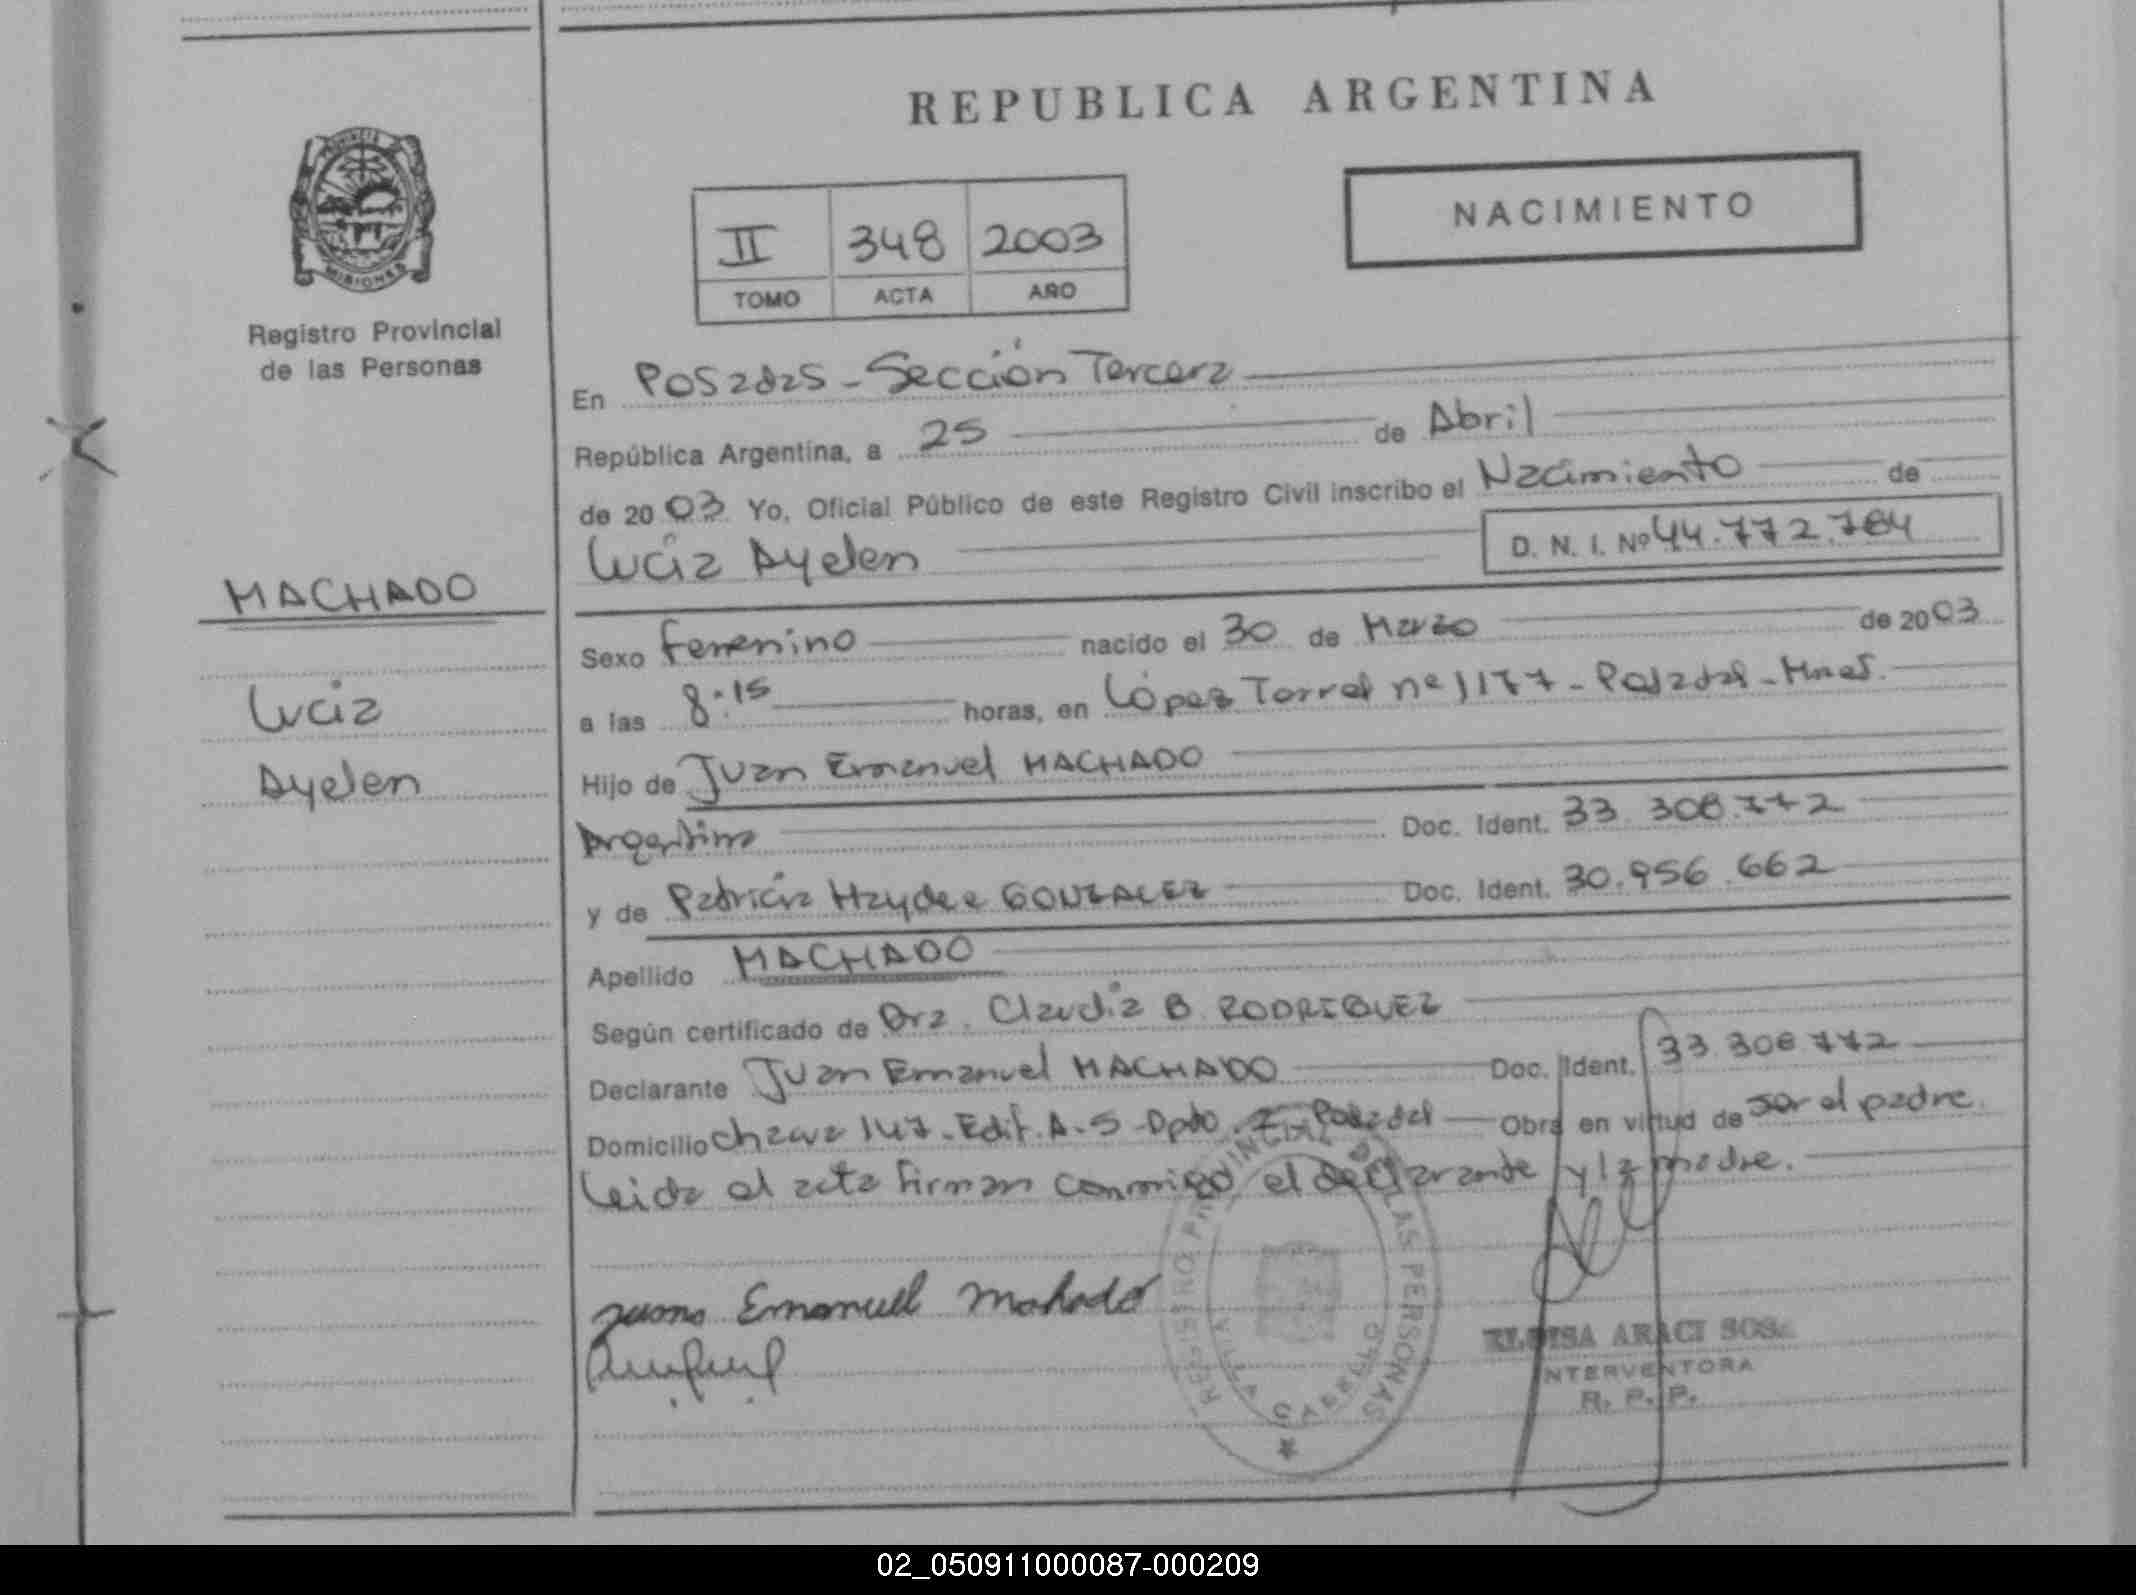 REPUBLICA ARGENTINA
NACIMIENTO
II 348 2003
TOMO ACTA AÑO
PROVINCIA
MISIONES
Registro Provincial
de las Personas
MACHADO
Lucia
Ayelen
En Posadas - Sección Tercera
República Argentina, a 25 de Abril
de 2003 Yo, Oficial Público de este Registro Civil inscribo el Nacimiento de
Lucia Ayelen D. N. I. Nº 44.772.784
Sexo Femenino nacido el 30 de Marzo de 2003
a las 8.15 horas, en López Torres nº 1177 - Posadas - Mnes.
Hijo de Juan Emanuel MACHADO
Argentino Doc. Ident. 33.308.772
y de Patricia Haydee GONZALEZ Doc. Ident. 30.956.662
Apellido MACHADO
Según certificado de Dra. Claudia B. RODRIGUEZ
Declarante Juan Emanuel MACHADO Doc. Ident. 33.308.772
Domicilio 147 - Edif. A-5 - Dpto. Posadas Obra en virtud de ser el padre.
Leida el acta firman conmigo el declarante y la madre.
Emanuel
REGISTRO PROVINCIAL DE LAS PERSONAS
VILLA CABELLO
ELOISA ARACI SOSA
INTERVENTORA
R. P. P.
02_050911000087-000209